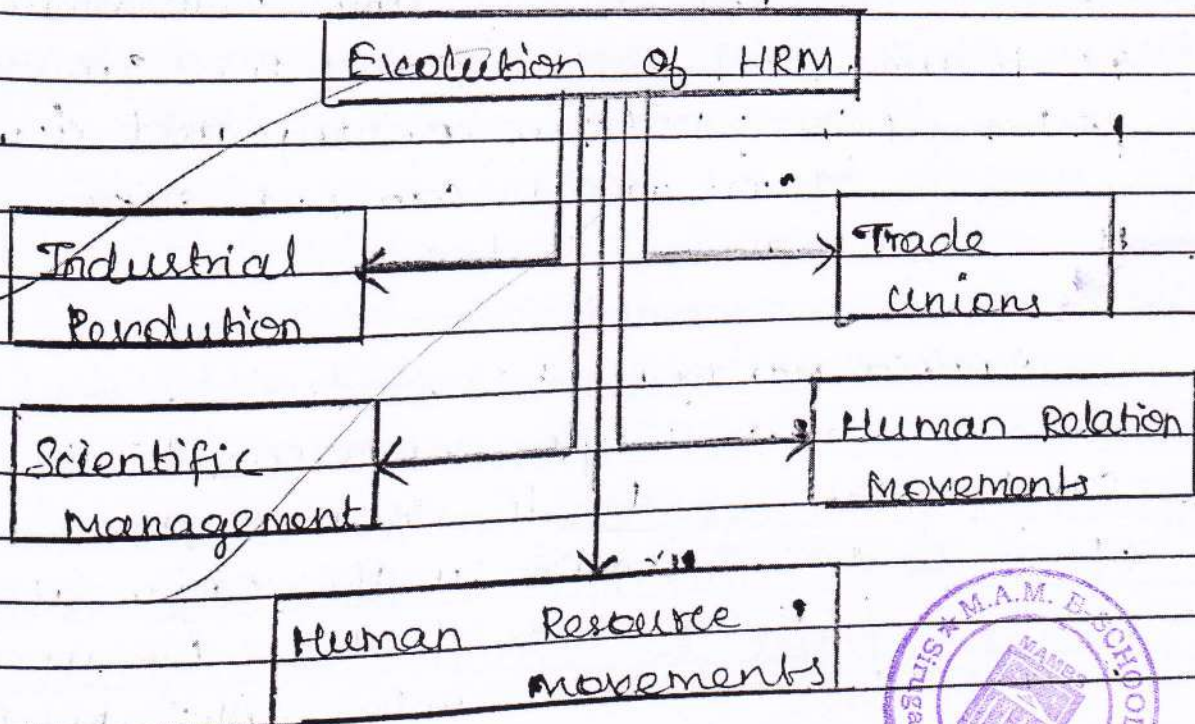 Evolution of HRM.
Industrial
Revolution
Trade
unions
Scientific
Management
Human Relation
Movements
Human Resource
movements
M.A.M. B-SCHOOL
MAMBS